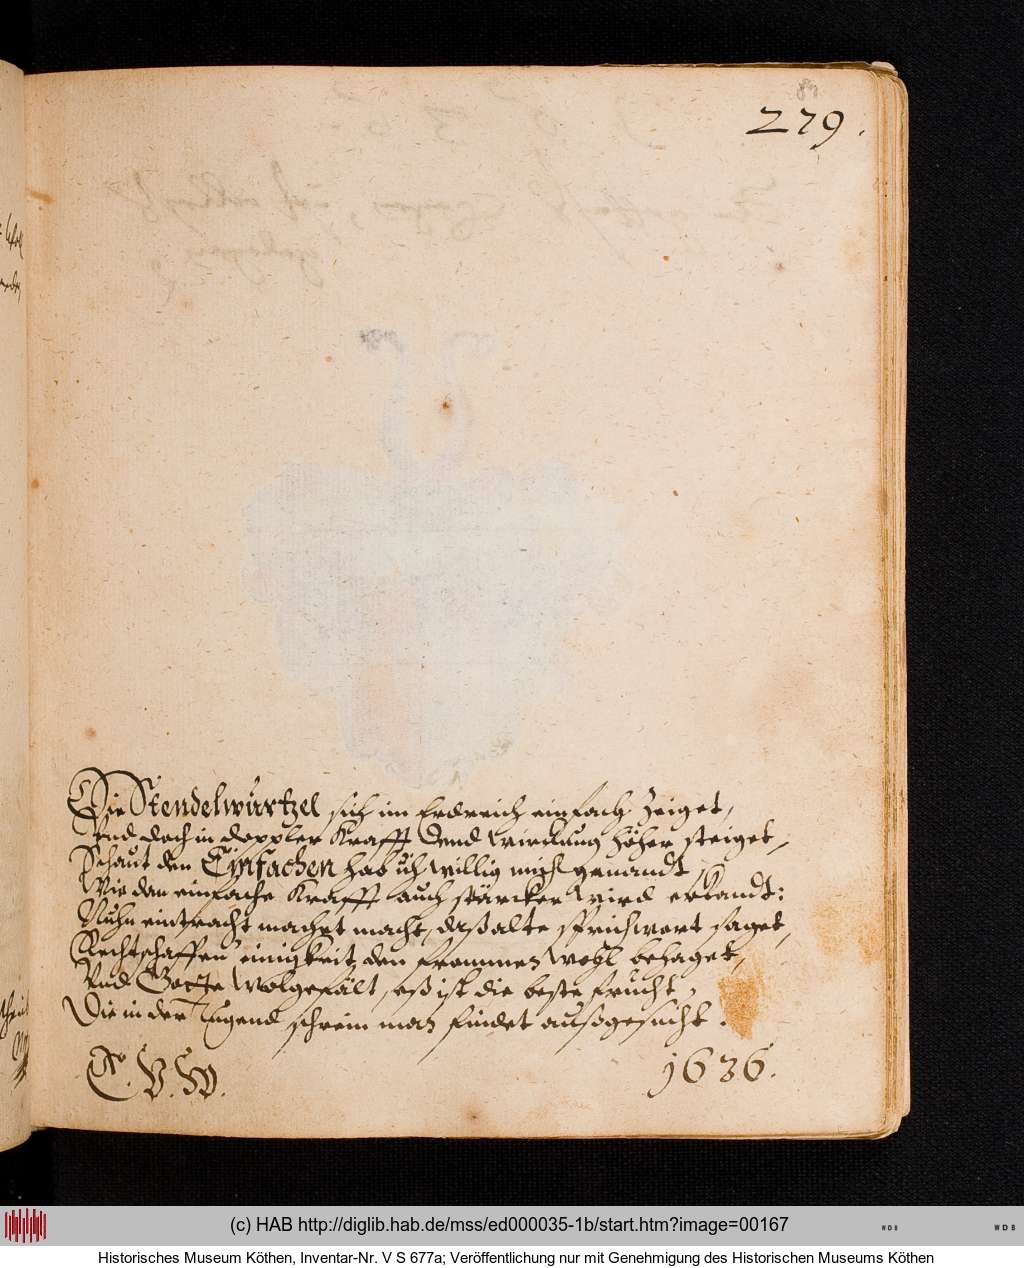 279.
Die Stendelwürtzel sich im Erdreich einfach zeiget,
Vnd doch in doppler Krafft Vnd Wirckung höher steiget,
Schaut den Einfachen hab ich willig mich genandt,
Wie dan einfache Krafft auch stärcker Wird erkandt:
Nuhn eintracht machet macht, daß alte sprichwort saget,
Rechtschaffen einigkeit den frommen Wohl behaget,
Vnd Gotte Wolgefält, eß ist die beste frucht,
Die in der Tugend schrein man findet außgesucht.
C. V. W. 1636.
(c) HAB http://diglib.hab.de/mss/ed000035-1b/start.htm?image=00167
W D B
W D B
Historisches Museum Köthen, Inventar-Nr. V S 677a; Veröffentlichung nur mit Genehmigung des Historischen Museums Köthen